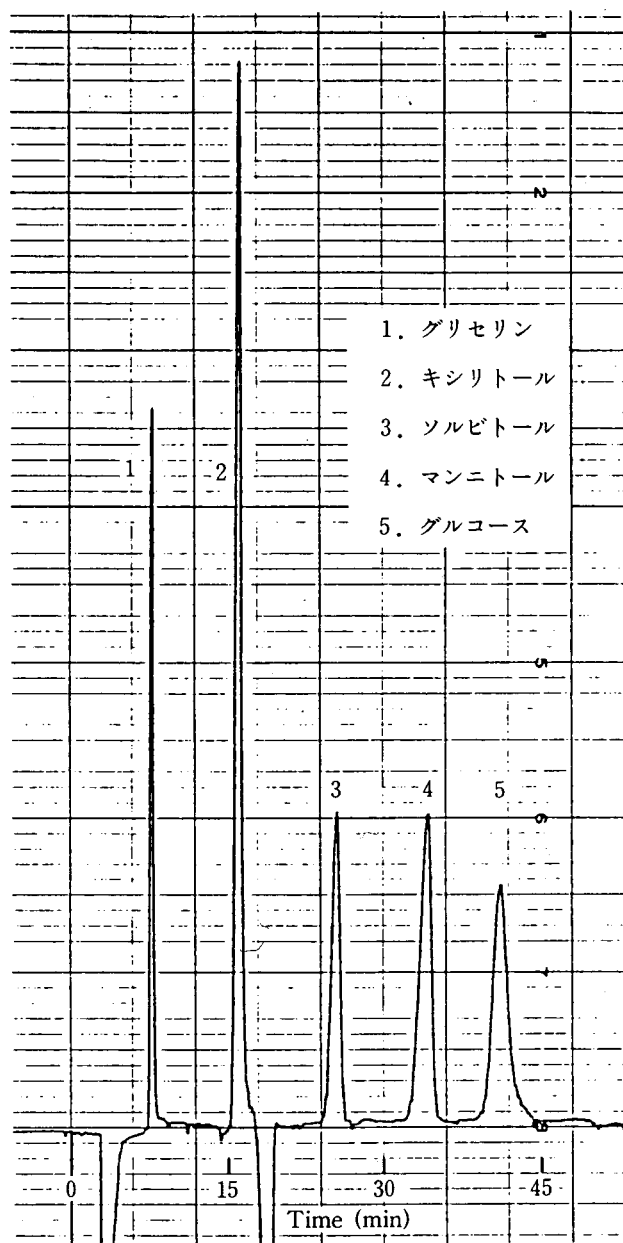 1
2
1. グリセリン
2. キシリトール
3. ソルビトール
4. マンニトール
5. グルコース
1
2
5
3
4
5
6
7
8
0
15
30
45
Time (min)